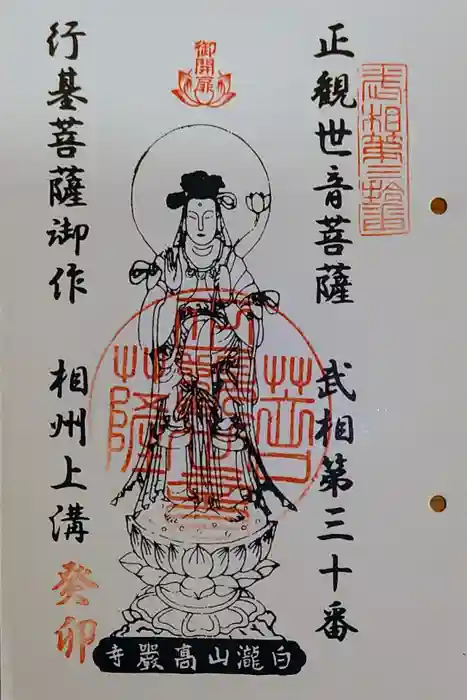 武相第三拾番
正觀世音菩薩 武相第三十番
御開扉
行基菩薩御作 相州上溝
癸卯
白瀧山高巖寺